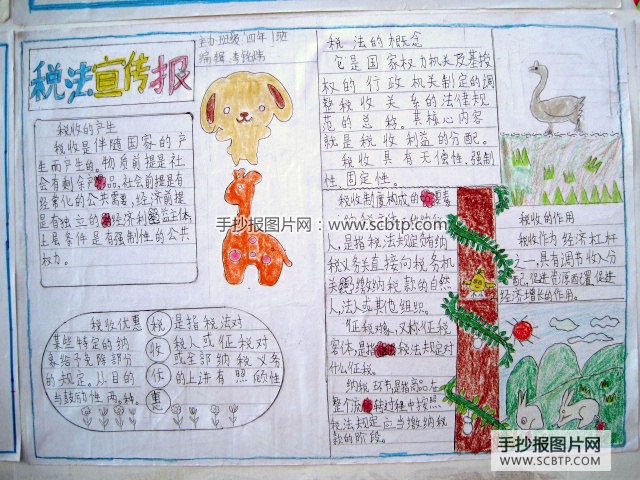 税法宣传报
主办 班级 四年1班
编辑
税收的产生
税收是伴随国家的产
生而产生的。物质前提是社
会有剩余产品,社会前提是有
经常化的公共需要,经济前提
是有独立的经济利益主体,
上层条件是有强制性的公共
权力。
税收优惠
税收优惠
是指税法对
某些特定的纳
税人或征税对
象给予免除部分
或全部纳税义务
的规定。从目的
上讲有照顾性
与鼓励性两种。
税法的概念
它是国家权力机关及其授
权的行政机关制定的调
整税收关系的法律规
范的总称。其核心内容
就是税收利益的分配。
税收具有无偿性、强制
性、固定性。
税收制度构成的要素
人,是指税法规定负有纳
税义务直接向税务机
关缴纳税款的自然
人,法人或其他组织。
征税对象,又称征税
客体,是指税法规定对
什么征税。
纳税环节是指商品在
整个流转过程中按照
税法规定应当缴纳税
款的阶段。
税收的作用
税收作为经济杠杆
之一,具有调节收入分
配,促进资源配置,促进
经济增长的作用。
手抄报图片网:www.scbtp.com
手抄报图片网
WWW.SCBTP.COM